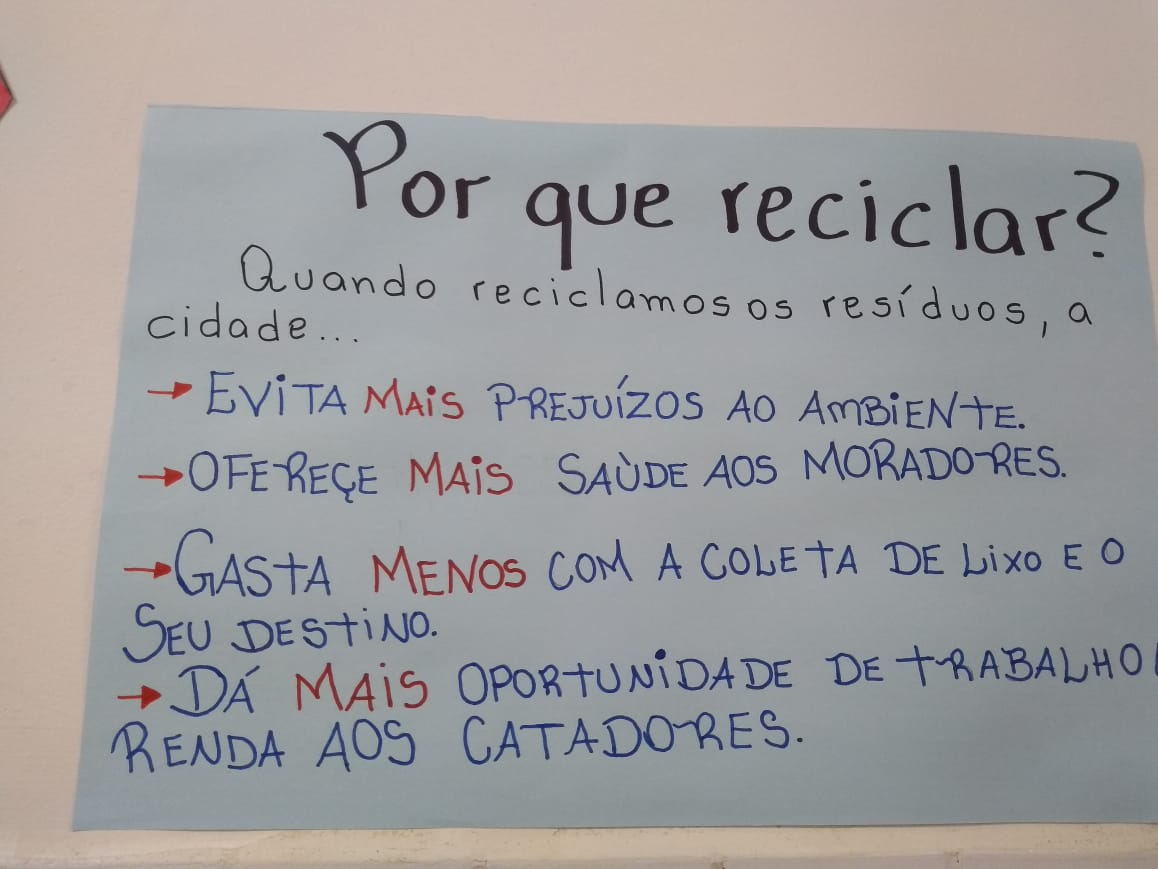 Por que reciclar?
Quando reciclamos os resíduos, a
cidade...
→ EVITA MAIS PREJUÍZOS AO AMBIENTE.
→ OFEREÇE MAIS SAÙDE AOS MORADORES.
→ GASTA MENOS COM A COLETA DE LIXO E O
SEU DESTINO.
→ DÁ MAIS OPORTUNIDADE DE TRABALHO
RENDA AOS CATADORES.